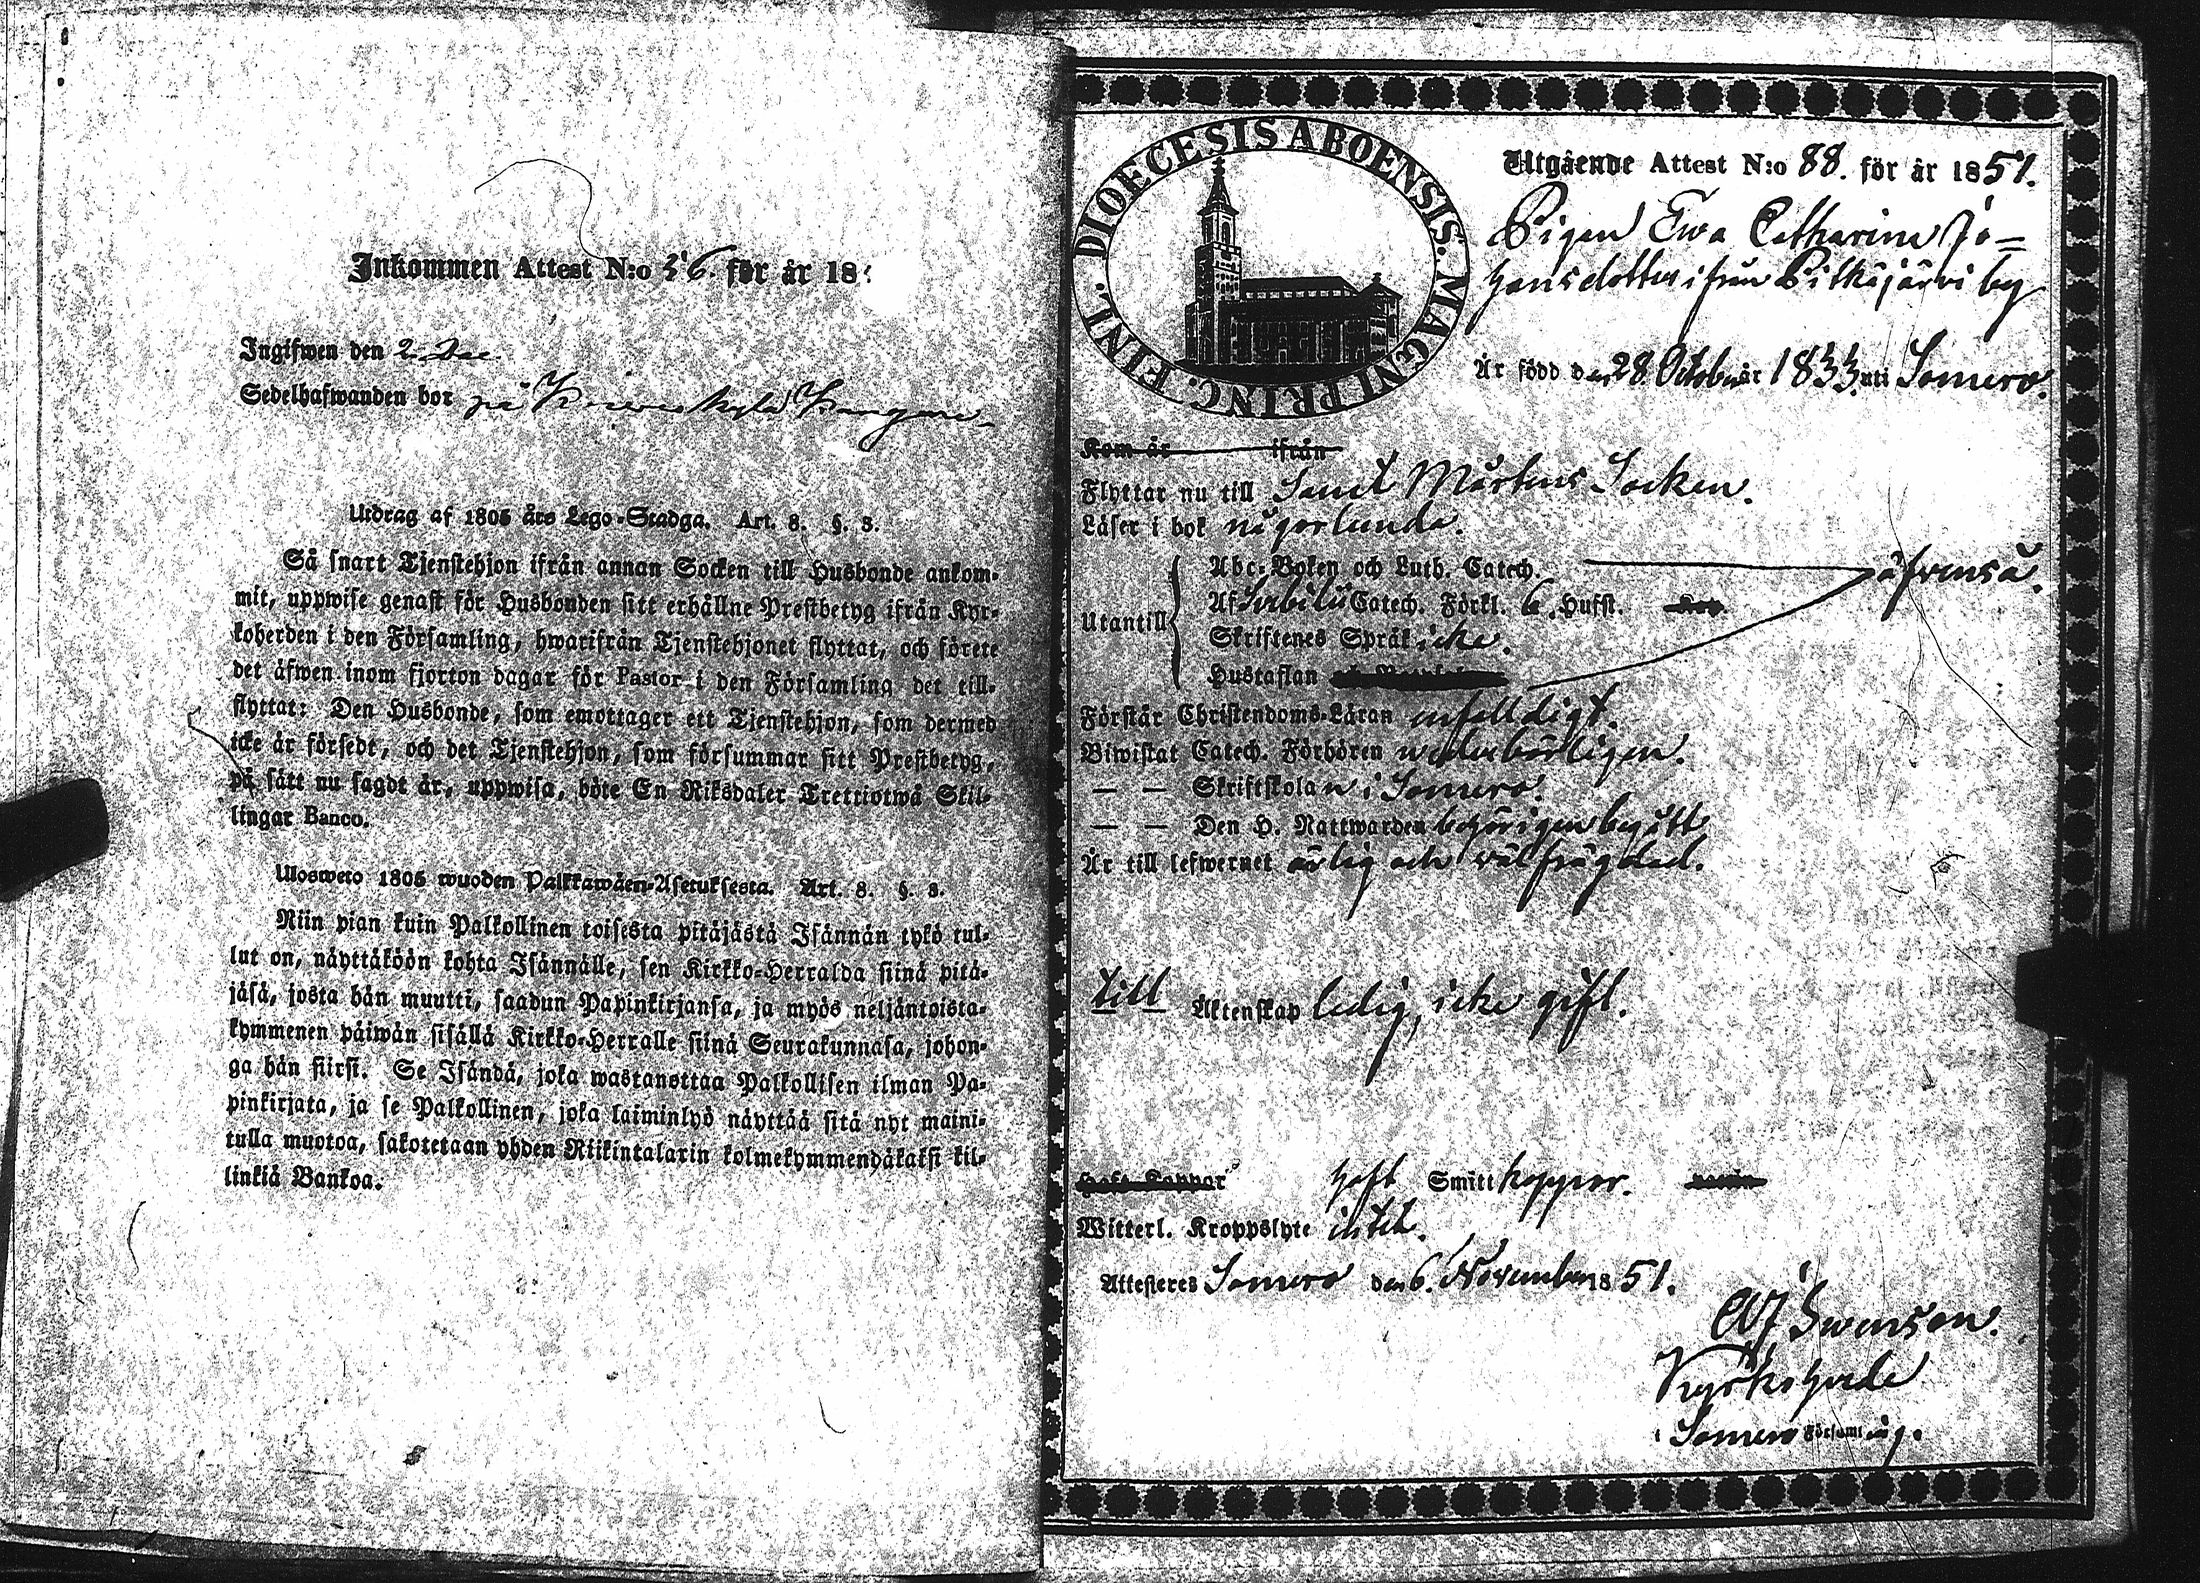 Inkommen Attest N:o 56. för år 18
Ingifwen den 2. Dec.
Sedelhafwanden bor på
Utdrag af 1805 års Lego-Stadga. Art. 8. §. 3.
Så snart Tjenstehjon ifrån annan Socken till Husbonde ankom-
mit, uppwise genast för Husbonden sitt erhållne Prestbetyg ifrån Kyr-
koherden i den Församling, hwarifrån Tjenstehjonet flyttat, och förete
det äfwen inom fjorton dagar för Pastor i den Församling det till-
flyttat: Den Husbonde, som emottager ett Tjenstehjon, som dermed
icke är försedt, och det Tjenstehjon, som försummar sitt Prestbetyg,
på sätt nu sagdt är, uppwisa, böte En Riksdaler Trettiotwå Skil-
lingar Banco.
Ulosweto 1805 wuoden Palkkawäen-Asetuksesta. Art. 8. §. 3.
Niin pian kuin Palkollinen toisesta pitäjästä Isännän tykö tul-
lut on, näyttäköön kohta Isännälle, sen Kirkko-Herralda siinä pitä-
jäsä, josta hän muutti, saadun Papinkirjansa, ja myös neljäntoista-
kymmenen päiwän sisällä Kirkko-Herralle siinä Seurakunnasa, johon-
ga hän siirsi. Se Isändä, joka wastanottaa Palkollisen ilman Pa-
pinkirjata, ja se Palkollinen, joka laiminlyö näyttää sitä nyt maini-
tulla muotoa, sakotetaan yhden Riikintalarin kolmekymmendäkaksi kil-
linkiä Bankoa.
DIOECESIS ABOENSIS. MAGNI PRINC. FINL.
Utgående Attest N:o 88. för år 1851.
Pigan Ewa Catharina Jo=
hansdotter ifrån Pitkäjärvi by
Är född den 28 October år 1833. uti Somero.
Kom år ifrån
Flyttar nu till Sanct Mårtens Socken.
Läser i bok någorlunda.
Utantill
Abc-Boken och Luth. Catech. äfvenså.
Af Svebilii Catech. Förkl. 6. Hufst.
Skriftenes Språk icke.
Hustaflan
Förstår Christendoms-Läran enfaldigt.
Biwistat Catech. Förhören wederbörligen.
— — Skriftskolan i Somero.
— — Den H. Nattwarden behörigen begått
Är till lefwernet ärlig och välfrägdad.
till Äktenskap ledig, icke gift.
Haft Koppor haft Smittkoppor.
Witterl. Kroppslyte intet.
Attesteras Somero den 6. November 1851.
Swensson.
Kyrkoherde
i Somero Församling.